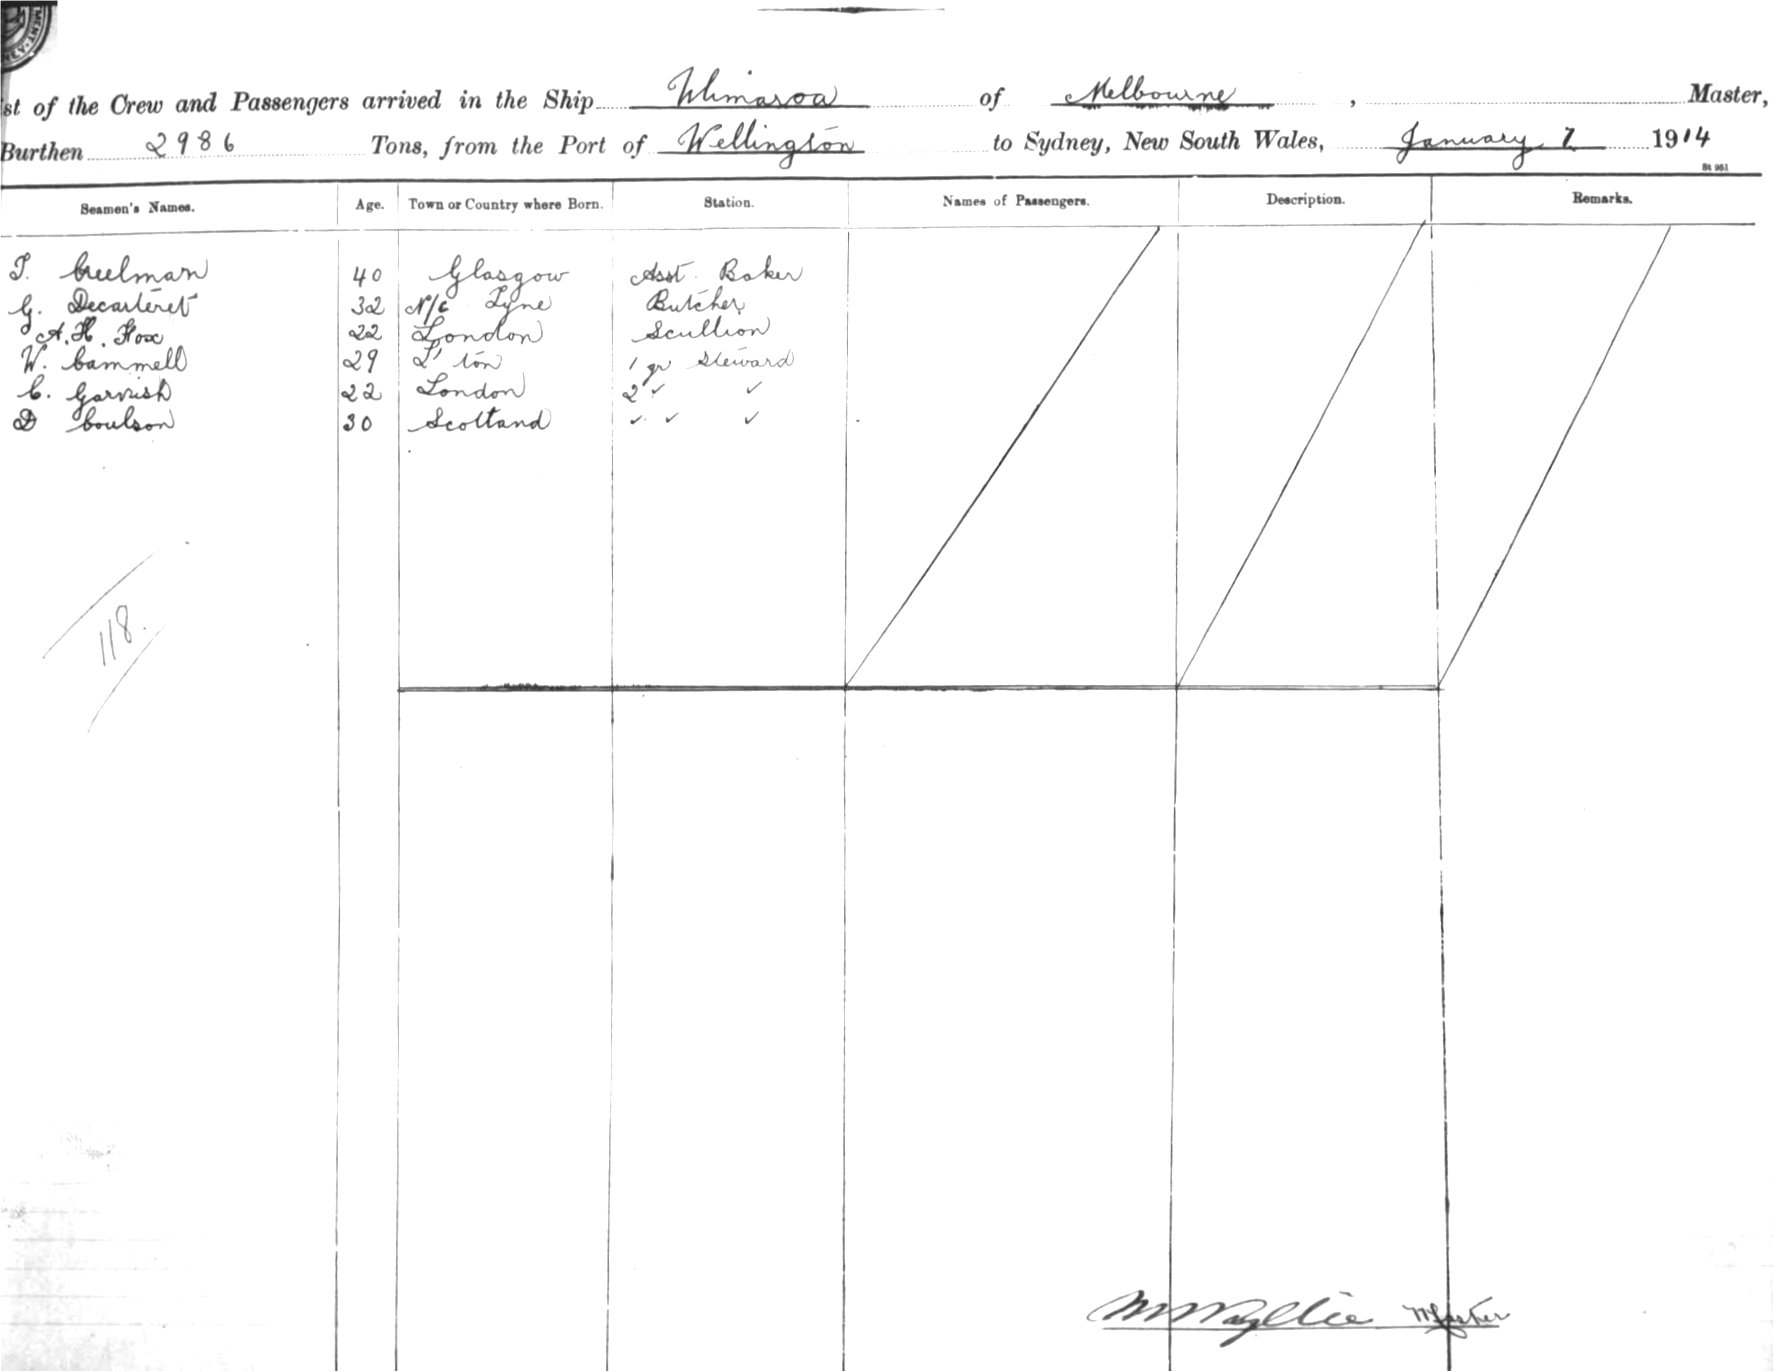 st of the Crew and Passengers arrived in the Ship Ulimaroa of Melbourne, Master,
Burthen 2986 Tons, from the Port of Wellington to Sydney, New South Wales, January 7 1914
St 961
Seamen's Names. Age. Town or Country where Born. Station. Names of Passengers. Description. Remarks.
T. Creelman 40 Glasgow Asst. Baker
G. Decarteret 32 N/C Tyne Butcher
A. H. Fox 22 London Scullion
W. Cammell 29 L'ton 1 gr Steward
C. Garnish 22 London 2 " "
D Coulson 30 Scotland " " "
118.
Wyllie Master